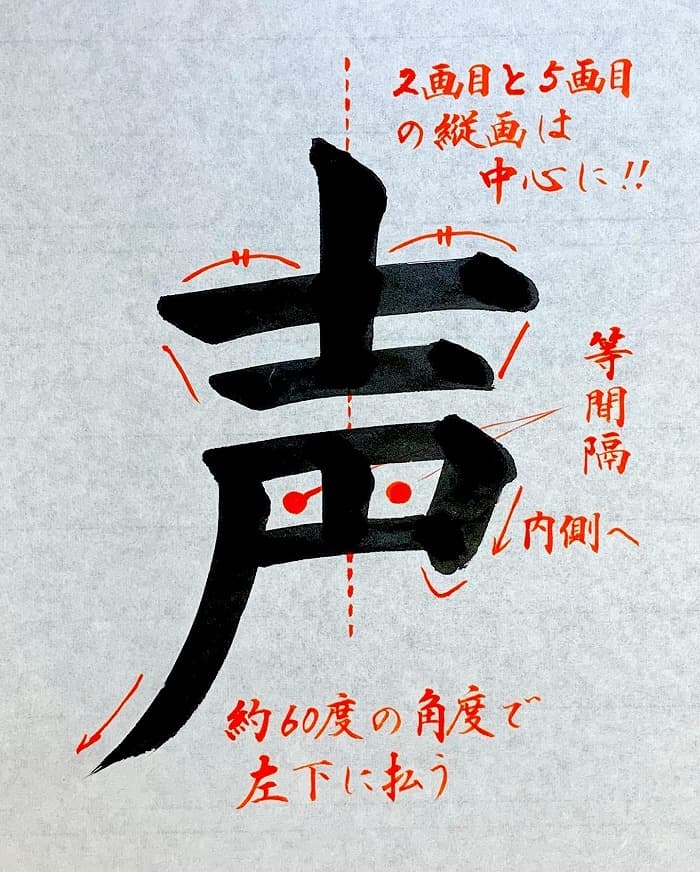 声
2画目と5画目
の縦画は
中心に!!
等間隔
内側へ
約60度の角度で
左下に払う